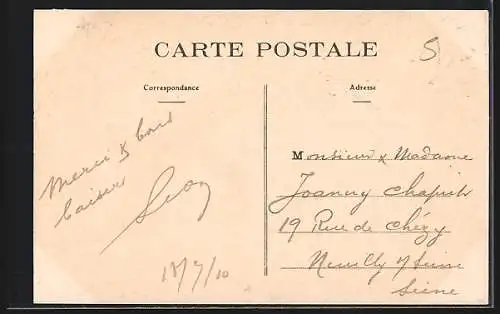 CARTE POSTALE
5
Correspondance
Adresse
Merci & bons
baisers
Léon
18/7/10
Monsieur & Madame
Joanny
19 Rue de Chézy
Neuilly s/ Seine
Seine